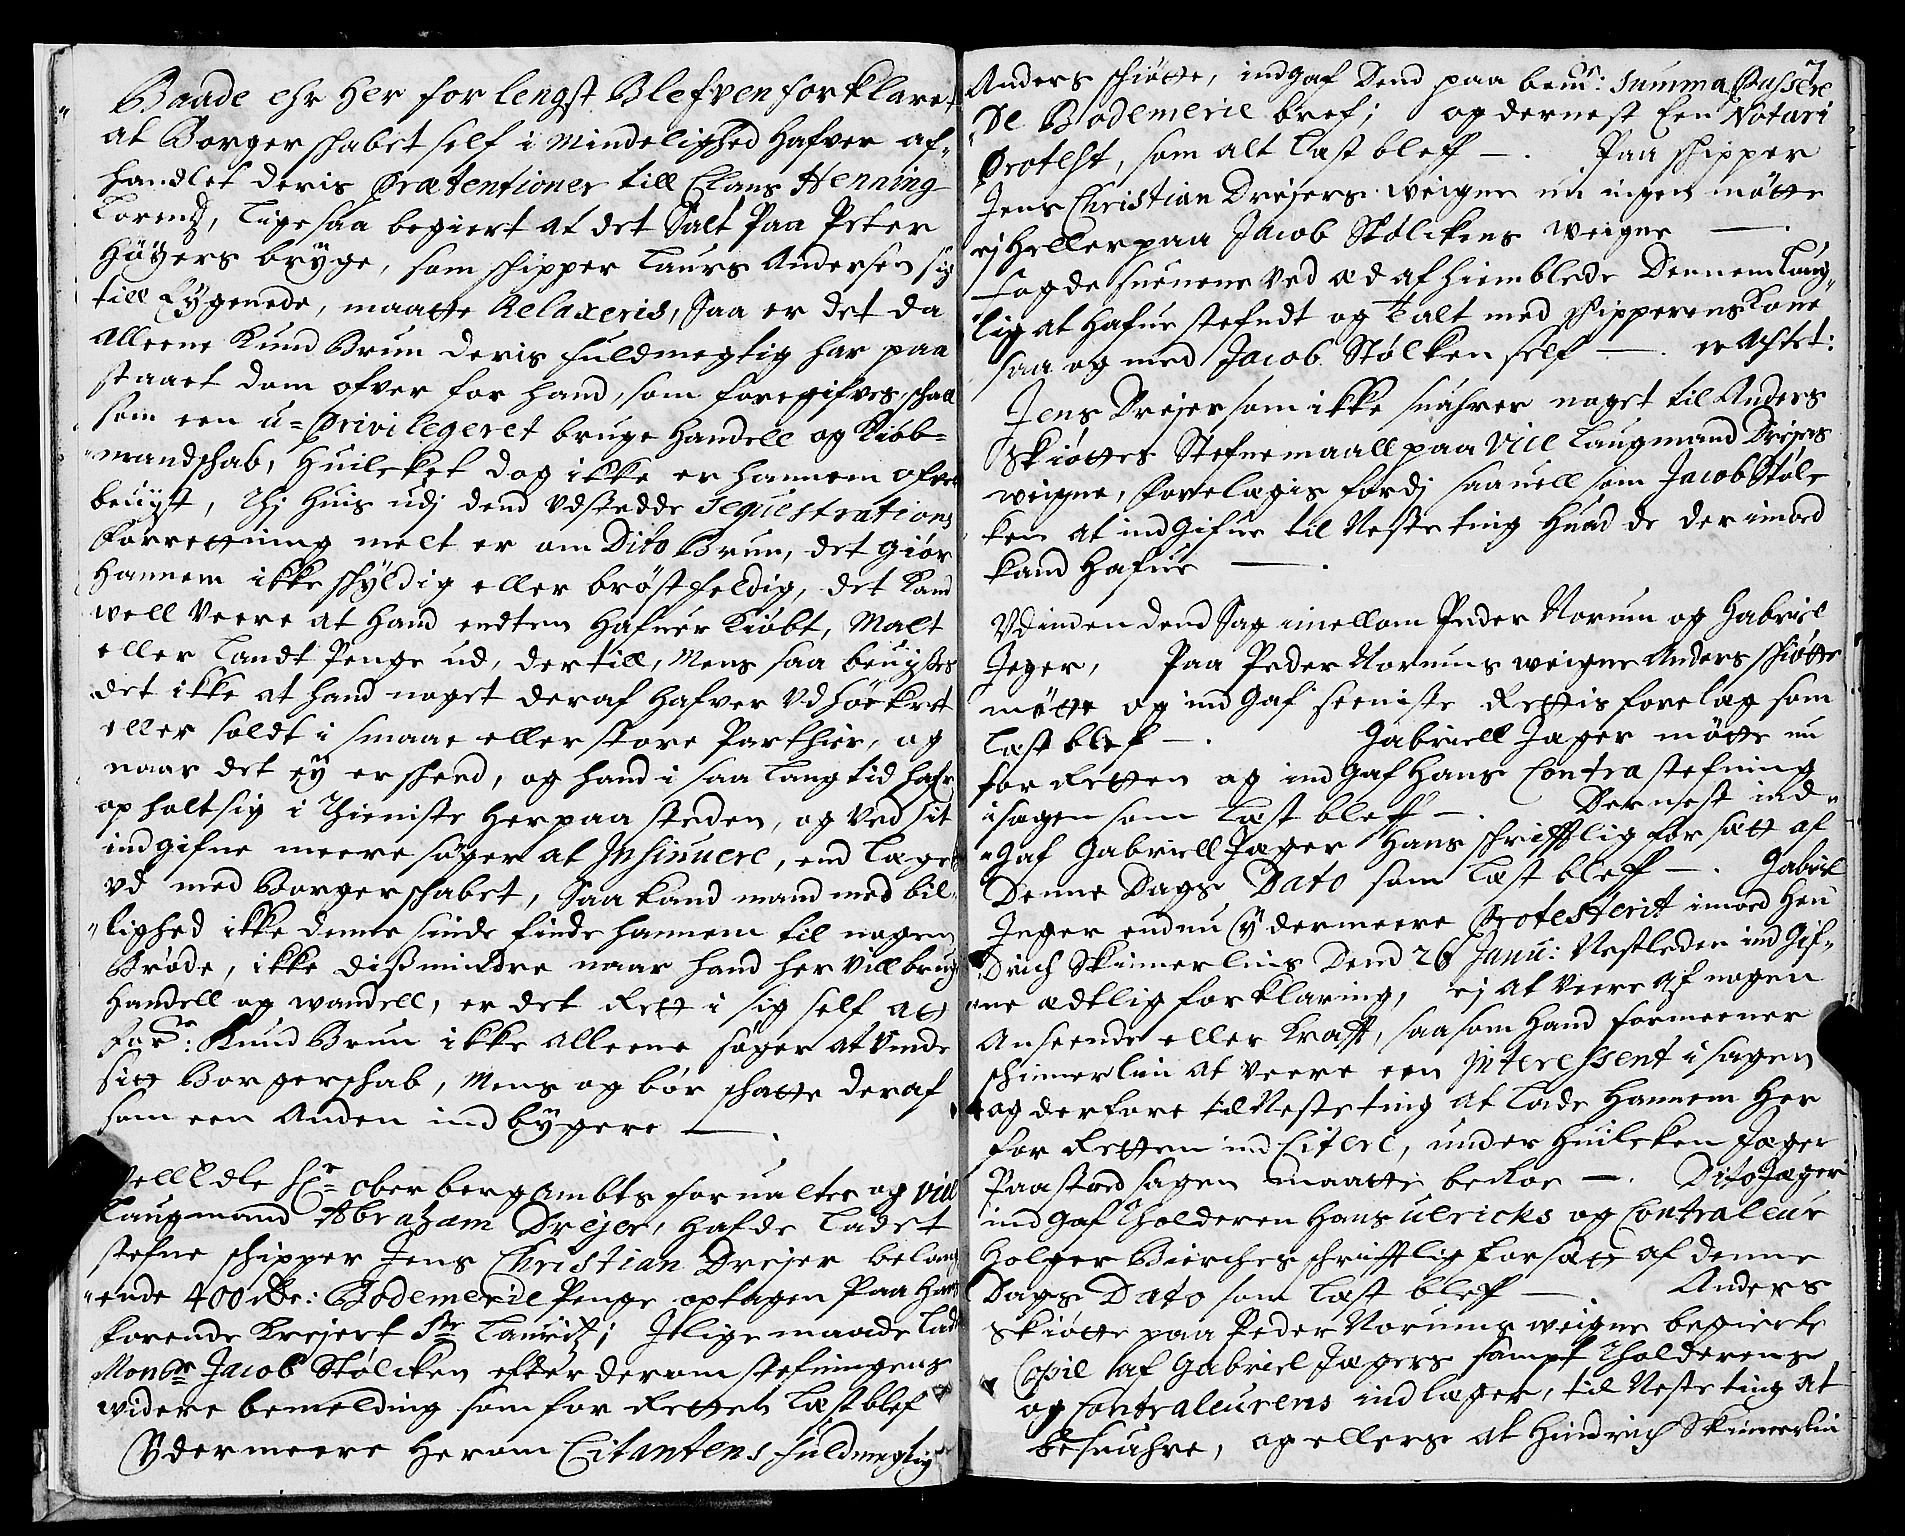 Baade ehr her for lengst Blefven forklaret
at Borgerskabet self i Mindelighed hafver af-
handlet deris Prætentioner till Claus Henning
Lorentz, ligesaa begiert at det Salt Paa Peter
Höÿers brÿge, som skipper Laurs Andersen sig
till Eÿgenede, maatte Relaxeris, saa er det da
alleene Knud Brun deris fuldmegtig har paa
staaet dom ofver for hand, som foregifves, skall
som een u-Privilegeret bruge Handell og Kiöb-
mandskab, Huilcket dog ikke er hannem ofver
beviist, thj huis udj dend Udstedde Sequestrations
forrettning melt er om Dito Brun, det giör
Hannem ikke skÿldig eller bröstfeldig, det kand
well veere at hand endten hafuer Kiöbt, Malt
eller Landt Penge ud, dertill, Mens saa beviises
det ikke at hand noget deraf hafver Udhöckret
eller soldt i smaae eller store Parthier, og
naar det eÿ er skeed, og hand i saa lang tid hafr
opholt sig i thieniste her paa steden, og ved sit
indgifne meere söger at Insinuere, end læget
ud med Borgerskabet, Saa kand mand med bil-
lighed ikke denne sinde finde hannem til nogen
Bröde, ikke dißmindre naar hand her vill bruge
Handell og wandell, er det Rett i sig self at
for: Knud Brun ikke alleene söger at vinde
sitt Borgerskab, Mens og bör skatte deraf
som een anden indbÿgere —.
Vell Edle Hr ober berg Ambts forualter og vice
Laugmand Abraham Dreÿer, hafde ladet
stefne skipper Jens Christian Dreÿer belang-
ende 400 rdr: Bodemerie Penge optagen Paa hans
forende Kreÿert St Lauritz; I lige maade lad
Monsr Jacob Stölcken efter derom stefningens
widere bemelding som for Retten Læst blef
Ÿdermeere herom Citantens fuldmegtig
7
Anders skiötte, indgaf Dend paa bemte: Summa Passere
De Bodemerie bref; og dernest Een Notari
Protest, som alt Læst bleff —. Paa skipper
Jens Christian Dreÿers weigne nu ingen mötte
ej heller paa Jacob Stölckens weigne —.
Sagde suenene ved æd afhiemblede Dennem Laug-
lig at hafue stefndt og talt med skipperens Kone
saa og med Jacob Stölcken self —. er Agtet:
Jens Dreÿer som ikke suahrer noget til Anders
Skiöttes Stefnemaall paa Vice Laugmand Dreÿers
weigne, forelægis fordj saa uell som Jacob Stöl-
ken at indgifue til Neste ting huad de derimod
kand hafue —.
Udinden dend Sag imellom Peder Norum og Gabriel
Jeger, Paa Peder Norums weigne Anders skiötte
mötte og indgaf seeniste Rettis forelæg som
Læst blef —. Gabriell Jæger mötte nu
for Retten og indgaf hans Contra stefning
i sagen som Læst bleff —. Dernest ind-
gaf Gabriell Jæger hans skrifftlig forsætt af
Denne Dags Dato som Læst bleff —. Gabriel
Jeger endnu Ÿdermeere Protesterit imod Hen
drich Skimerlins Dend 26 Janu: Nestleden indgif-
ne ædtlig forklaring, ej at veere af nogen
Anseende eller Krafft, saasom hand formeener
skimerlin at veere een Interessent i sagen
og derfore til Neste ting at lade hannem her
for Retten ind Citere, under huilcken Jæger
Paastod sagen maatte beroe —. Dito Jæger
indgaf Tholderen Hans Ulricks og Contraleur
Holger Bierches skrifftlig forsætt af denne
Dags Dato som Læst bleff —. Anders
Skiötte paa Peder Norums weigne begierte
Copie af Gabriel Jægers sampt Tholderens
og Contraleurens indlæger, til Neste ting at
besuahre, og ellers at Hindrich Skimerlin